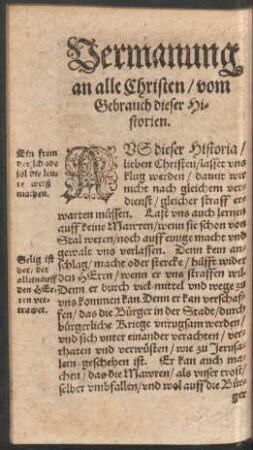 Vermanung
an alle Christen / vom
Gebrauch dieser Hi-
storien.
Ein frem
der schade
sol die leu-
te weiß
machen.
AUS dieser Historia /
lieben Christen / lasset vns
klug werden / damit wir
nicht nach gleichem ver-
dienst / gleicher straff er-
warten müssen. Last vns auch lernen
auff keine Mawren / wenn sie schon von
Stal weren / noch auff einige macht vnd
gewalt vns verlassen. Denn kein an-
schlag / mache oder stercke / hilfft wider
den HErrn / wenn er vns straffen wil.
Selig ist
der / der
allein auff
den HEr-
ren ver-
trawet.
Denn er durch viel mittel vnd wege zu
vns kommen kan. Denn er kan verschaf-
fen / das die Bürger in der Stadt / durch
bürgerliche Kriege vnrugsam werden /
vnd sich vnter einander verachten / ver-
rhaten vnd verwüsten / wie zu Jerusa-
lem geschehen ist. Er kan auch ma-
chen / das die Mawren / als vnser trost /
selber vmbfallen / vnd wol auff die Bür-
ger